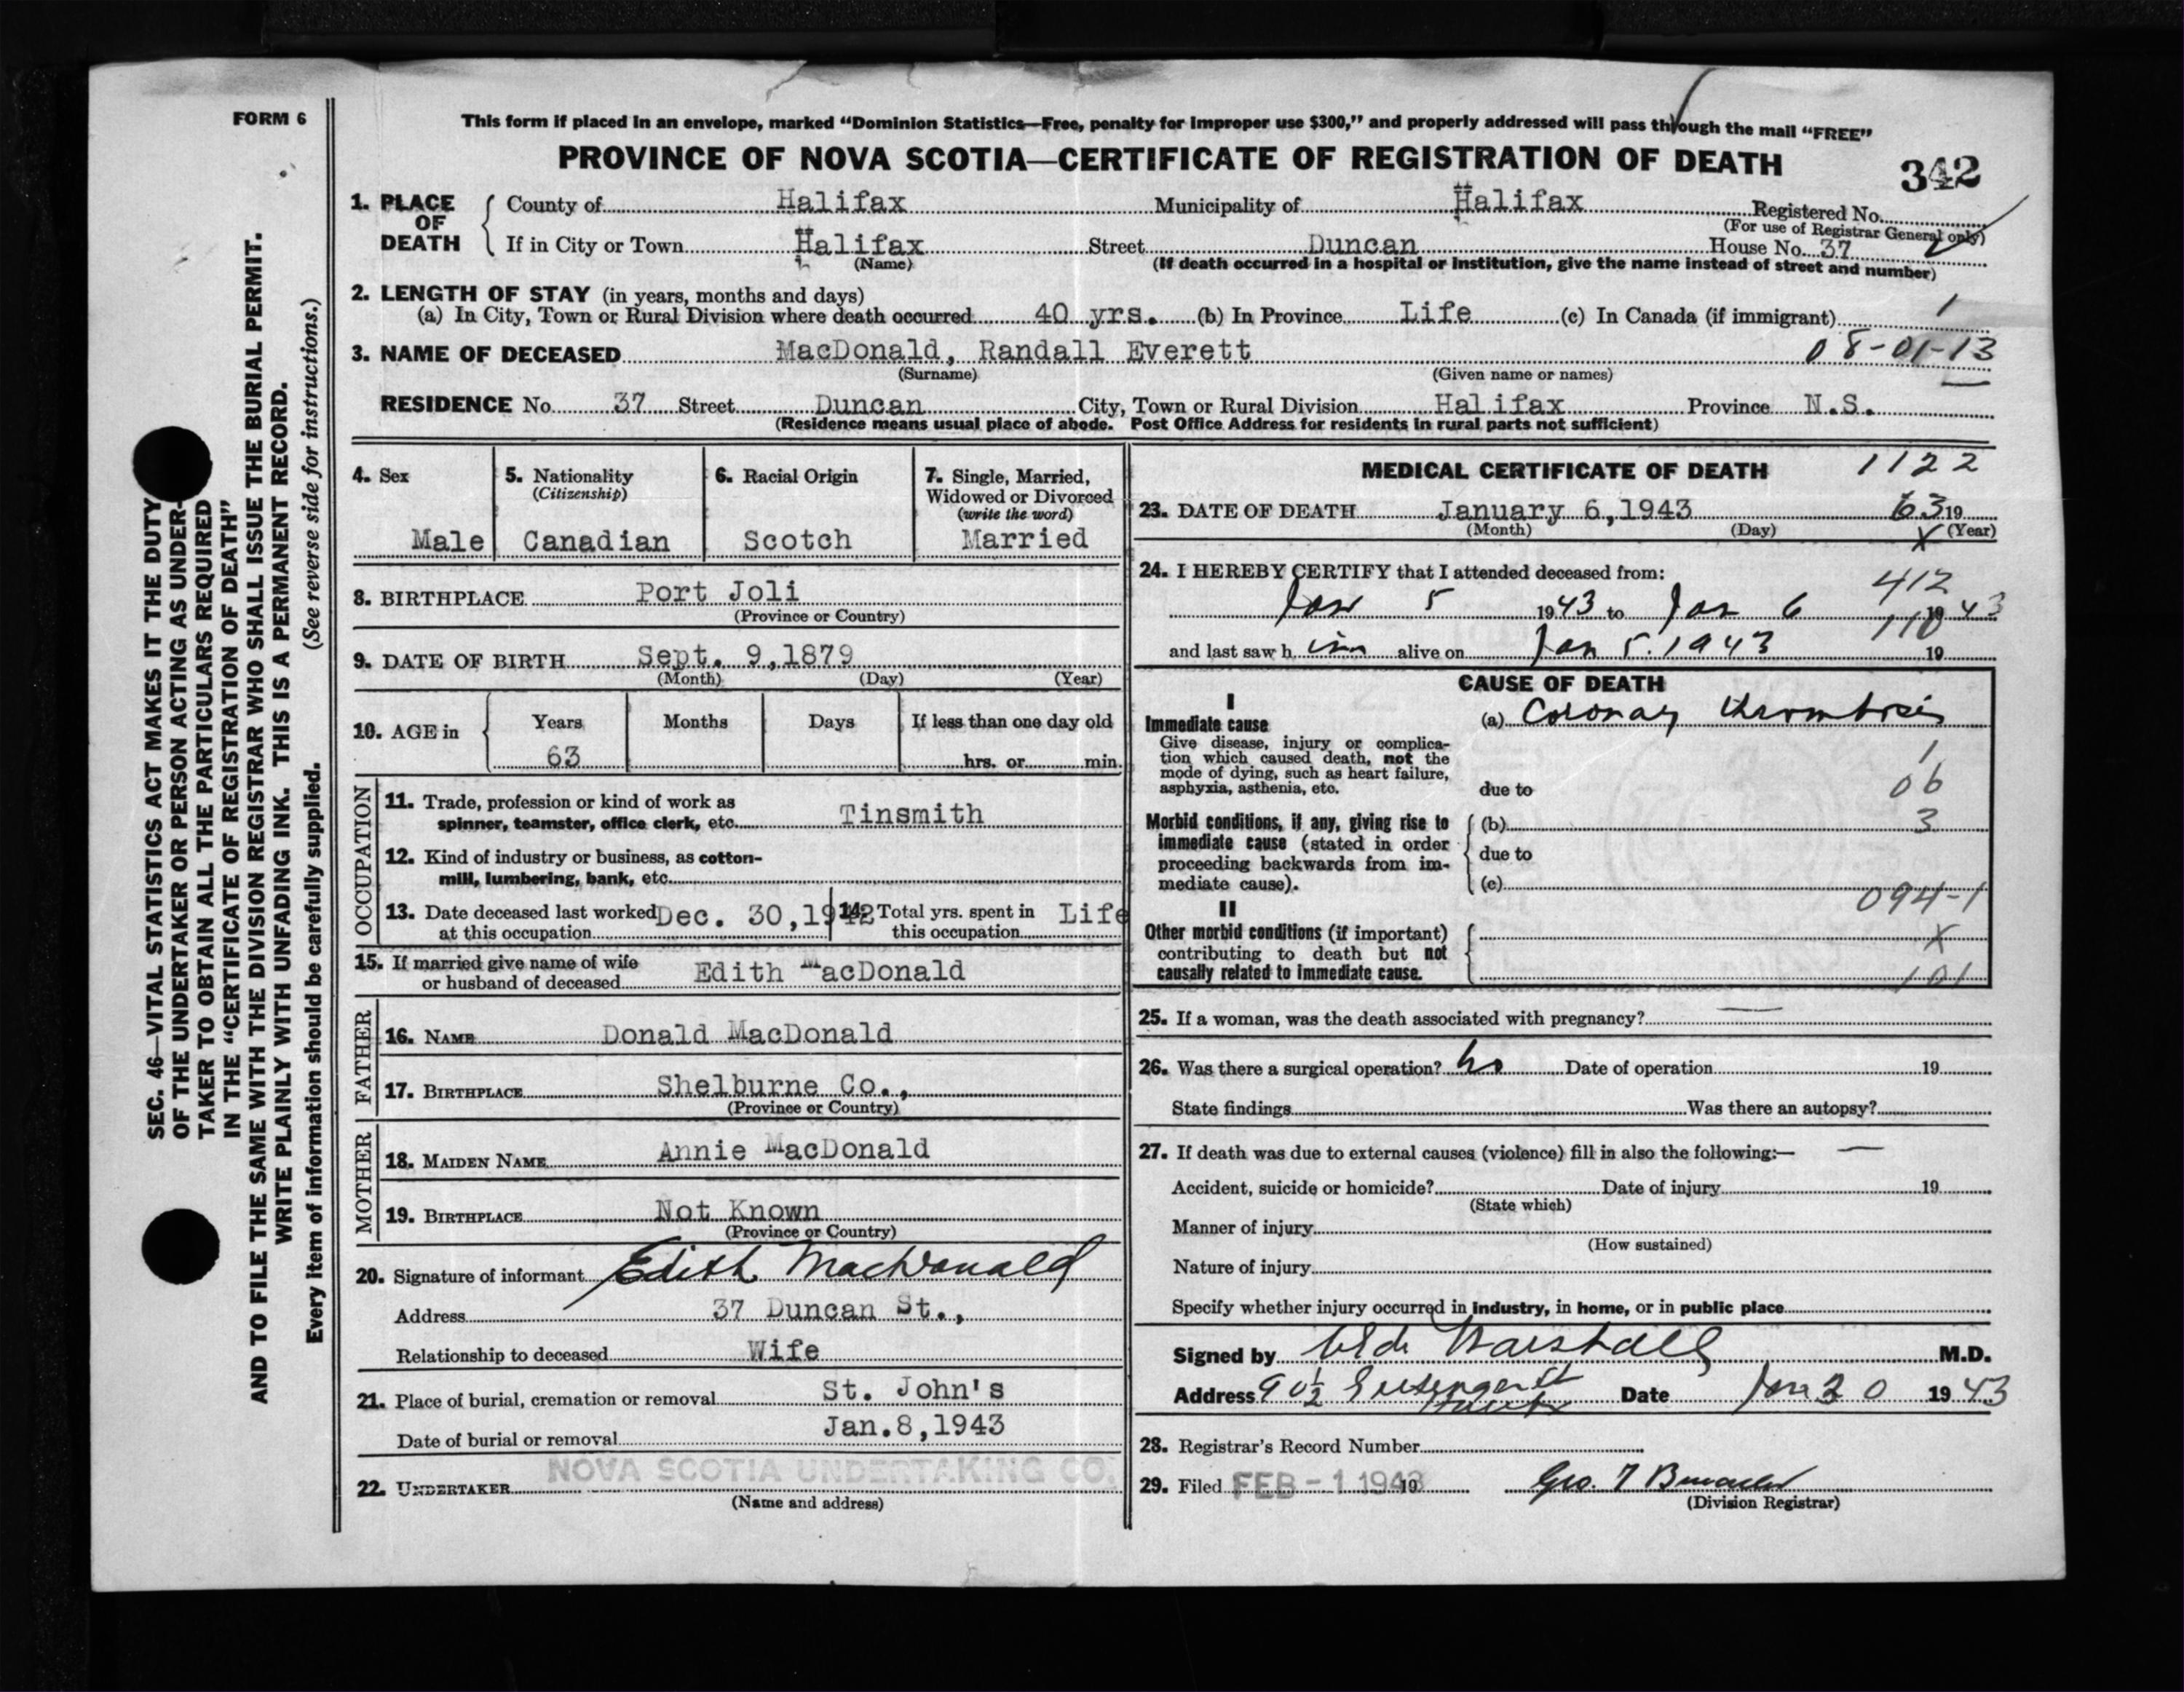 FORM 6
This form if placed in an envelope, marked “Dominion Statistics—Free, penalty for improper use $300,” and properly addressed will pass through the mail “FREE”
PROVINCE OF NOVA SCOTIA—CERTIFICATE OF REGISTRATION OF DEATH
342
1. PLACE OF DEATH
County of Halifax Municipality of Halifax Registered No.
(For use of Registrar General only)
If in City or Town Halifax Street Duncan House No. 37
(Name) (If death occurred in a hospital or institution, give the name instead of street and number)
2. LENGTH OF STAY (in years, months and days)
(a) In City, Town or Rural Division where death occurred 40 yrs. (b) In Province Life (c) In Canada (if immigrant) 1
3. NAME OF DECEASED MacDonald, Randall Everett 08-01-13
(Surname) (Given name or names)
RESIDENCE No. 37 Street Duncan City, Town or Rural Division Halifax Province N.S.
(Residence means usual place of abode. Post Office Address for residents in rural parts not sufficient)
4. Sex
Male
5. Nationality
(Citizenship)
Canadian
6. Racial Origin
Scotch
7. Single, Married,
Widowed or Divorced
(write the word)
Married
8. BIRTHPLACE Port Joli
(Province or Country)
9. DATE OF BIRTH Sept. 9,1879
(Month) (Day) (Year)
10. AGE in
Years Months Days If less than one day old
63 hrs. or min.
OCCUPATION
11. Trade, profession or kind of work as
spinner, teamster, office clerk, etc. Tinsmith
12. Kind of industry or business, as cotton-
mill, lumbering, bank, etc.
13. Date deceased last worked Dec. 30,1942
at this occupation
14. Total yrs. spent in Life
this occupation
15. If married give name of wife
or husband of deceased Edith MacDonald
FATHER
16. NAME Donald MacDonald
17. BIRTHPLACE Shelburne Co.,
(Province or Country)
MOTHER
18. MAIDEN NAME Annie MacDonald
19. BIRTHPLACE Not Known
(Province or Country)
20. Signature of informant Edith MacDonald
Address 37 Duncan St.,
Relationship to deceased Wife
21. Place of burial, cremation or removal St. John's
Date of burial or removal Jan.8,1943
NOVA SCOTIA UNDERTAKING CO.
22. UNDERTAKER
(Name and address)
MEDICAL CERTIFICATE OF DEATH 1122
23. DATE OF DEATH January 6,1943 63 19
(Month) (Day) (Year)
X
24. I HEREBY CERTIFY that I attended deceased from:
412
Jan 5 1943 to Jan 6 1943
110
and last saw him alive on Jan 5. 1943 19
CAUSE OF DEATH
I
Immediate cause
Give disease, injury or complica-
tion which caused death, not the
mode of dying, such as heart failure,
asphyxia, asthenia, etc.
(a) Coronary thrombosis
1
06
due to
Morbid conditions, if any, giving rise to
immediate cause (stated in order
proceeding backwards from im-
mediate cause).
(b) 3
due to
(c)
094-1
II
Other morbid conditions (if important)
contributing to death but not
causally related to immediate cause.
X
101
25. If a woman, was the death associated with pregnancy? —
26. Was there a surgical operation? No Date of operation 19
State findings Was there an autopsy?
27. If death was due to external causes (violence) fill in also the following:— —
Accident, suicide or homicide? Date of injury 19
(State which)
Manner of injury
(How sustained)
Nature of injury
Specify whether injury occurred in industry, in home, or in public place
Signed by Marshall M.D.
Address 90½ Date Jan 30 1943
28. Registrar's Record Number
29. Filed FEB - 1 1943 19 Geo. 
(Division Registrar)
SEC. 46—VITAL STATISTICS ACT MAKES IT THE DUTY
OF THE UNDERTAKER OR PERSON ACTING AS UNDER-
TAKER TO OBTAIN ALL THE PARTICULARS REQUIRED
IN THE “CERTIFICATE OF REGISTRATION OF DEATH”
AND TO FILE THE SAME WITH THE DIVISION REGISTRAR WHO SHALL ISSUE THE BURIAL PERMIT.
WRITE PLAINLY WITH UNFADING INK. THIS IS A PERMANENT RECORD.
Every item of information should be carefully supplied. (See reverse side for instructions.)